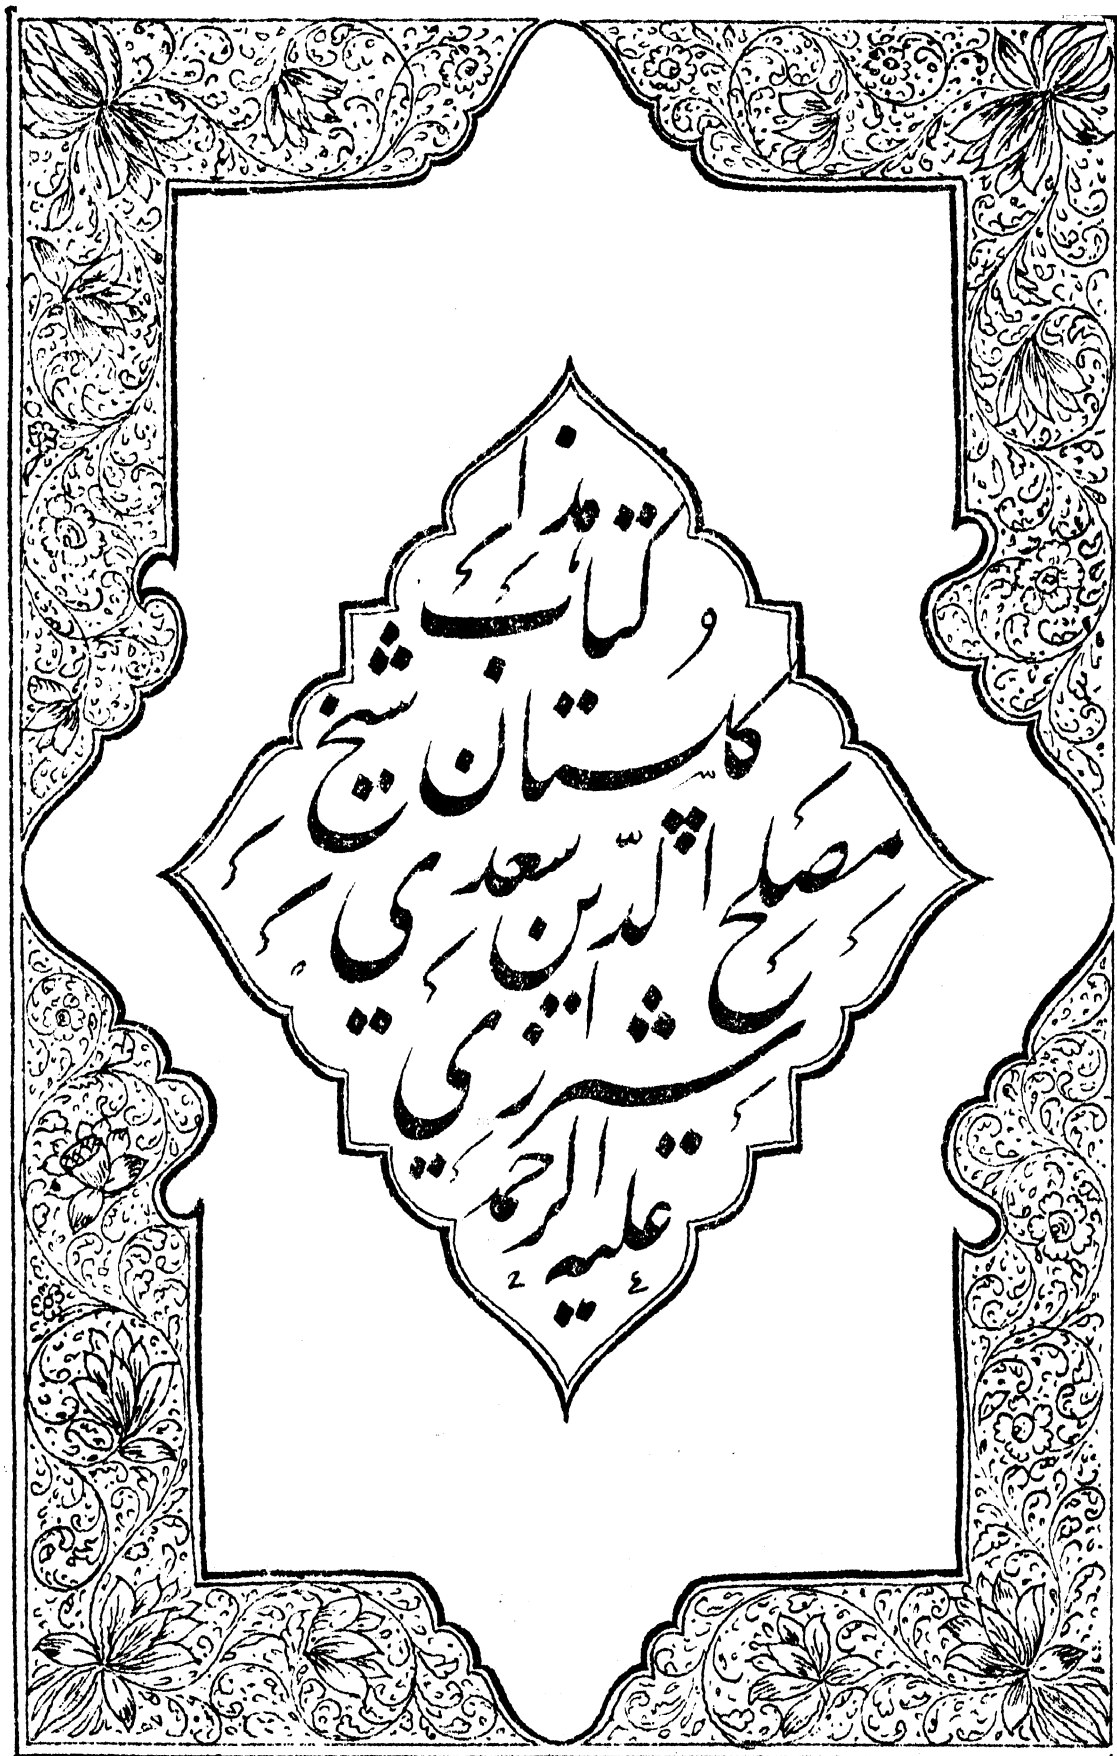 هذا
کتاب
کلستان شیخ
مصلح الدّین سعدی
شیرازی
علیه الرحمة